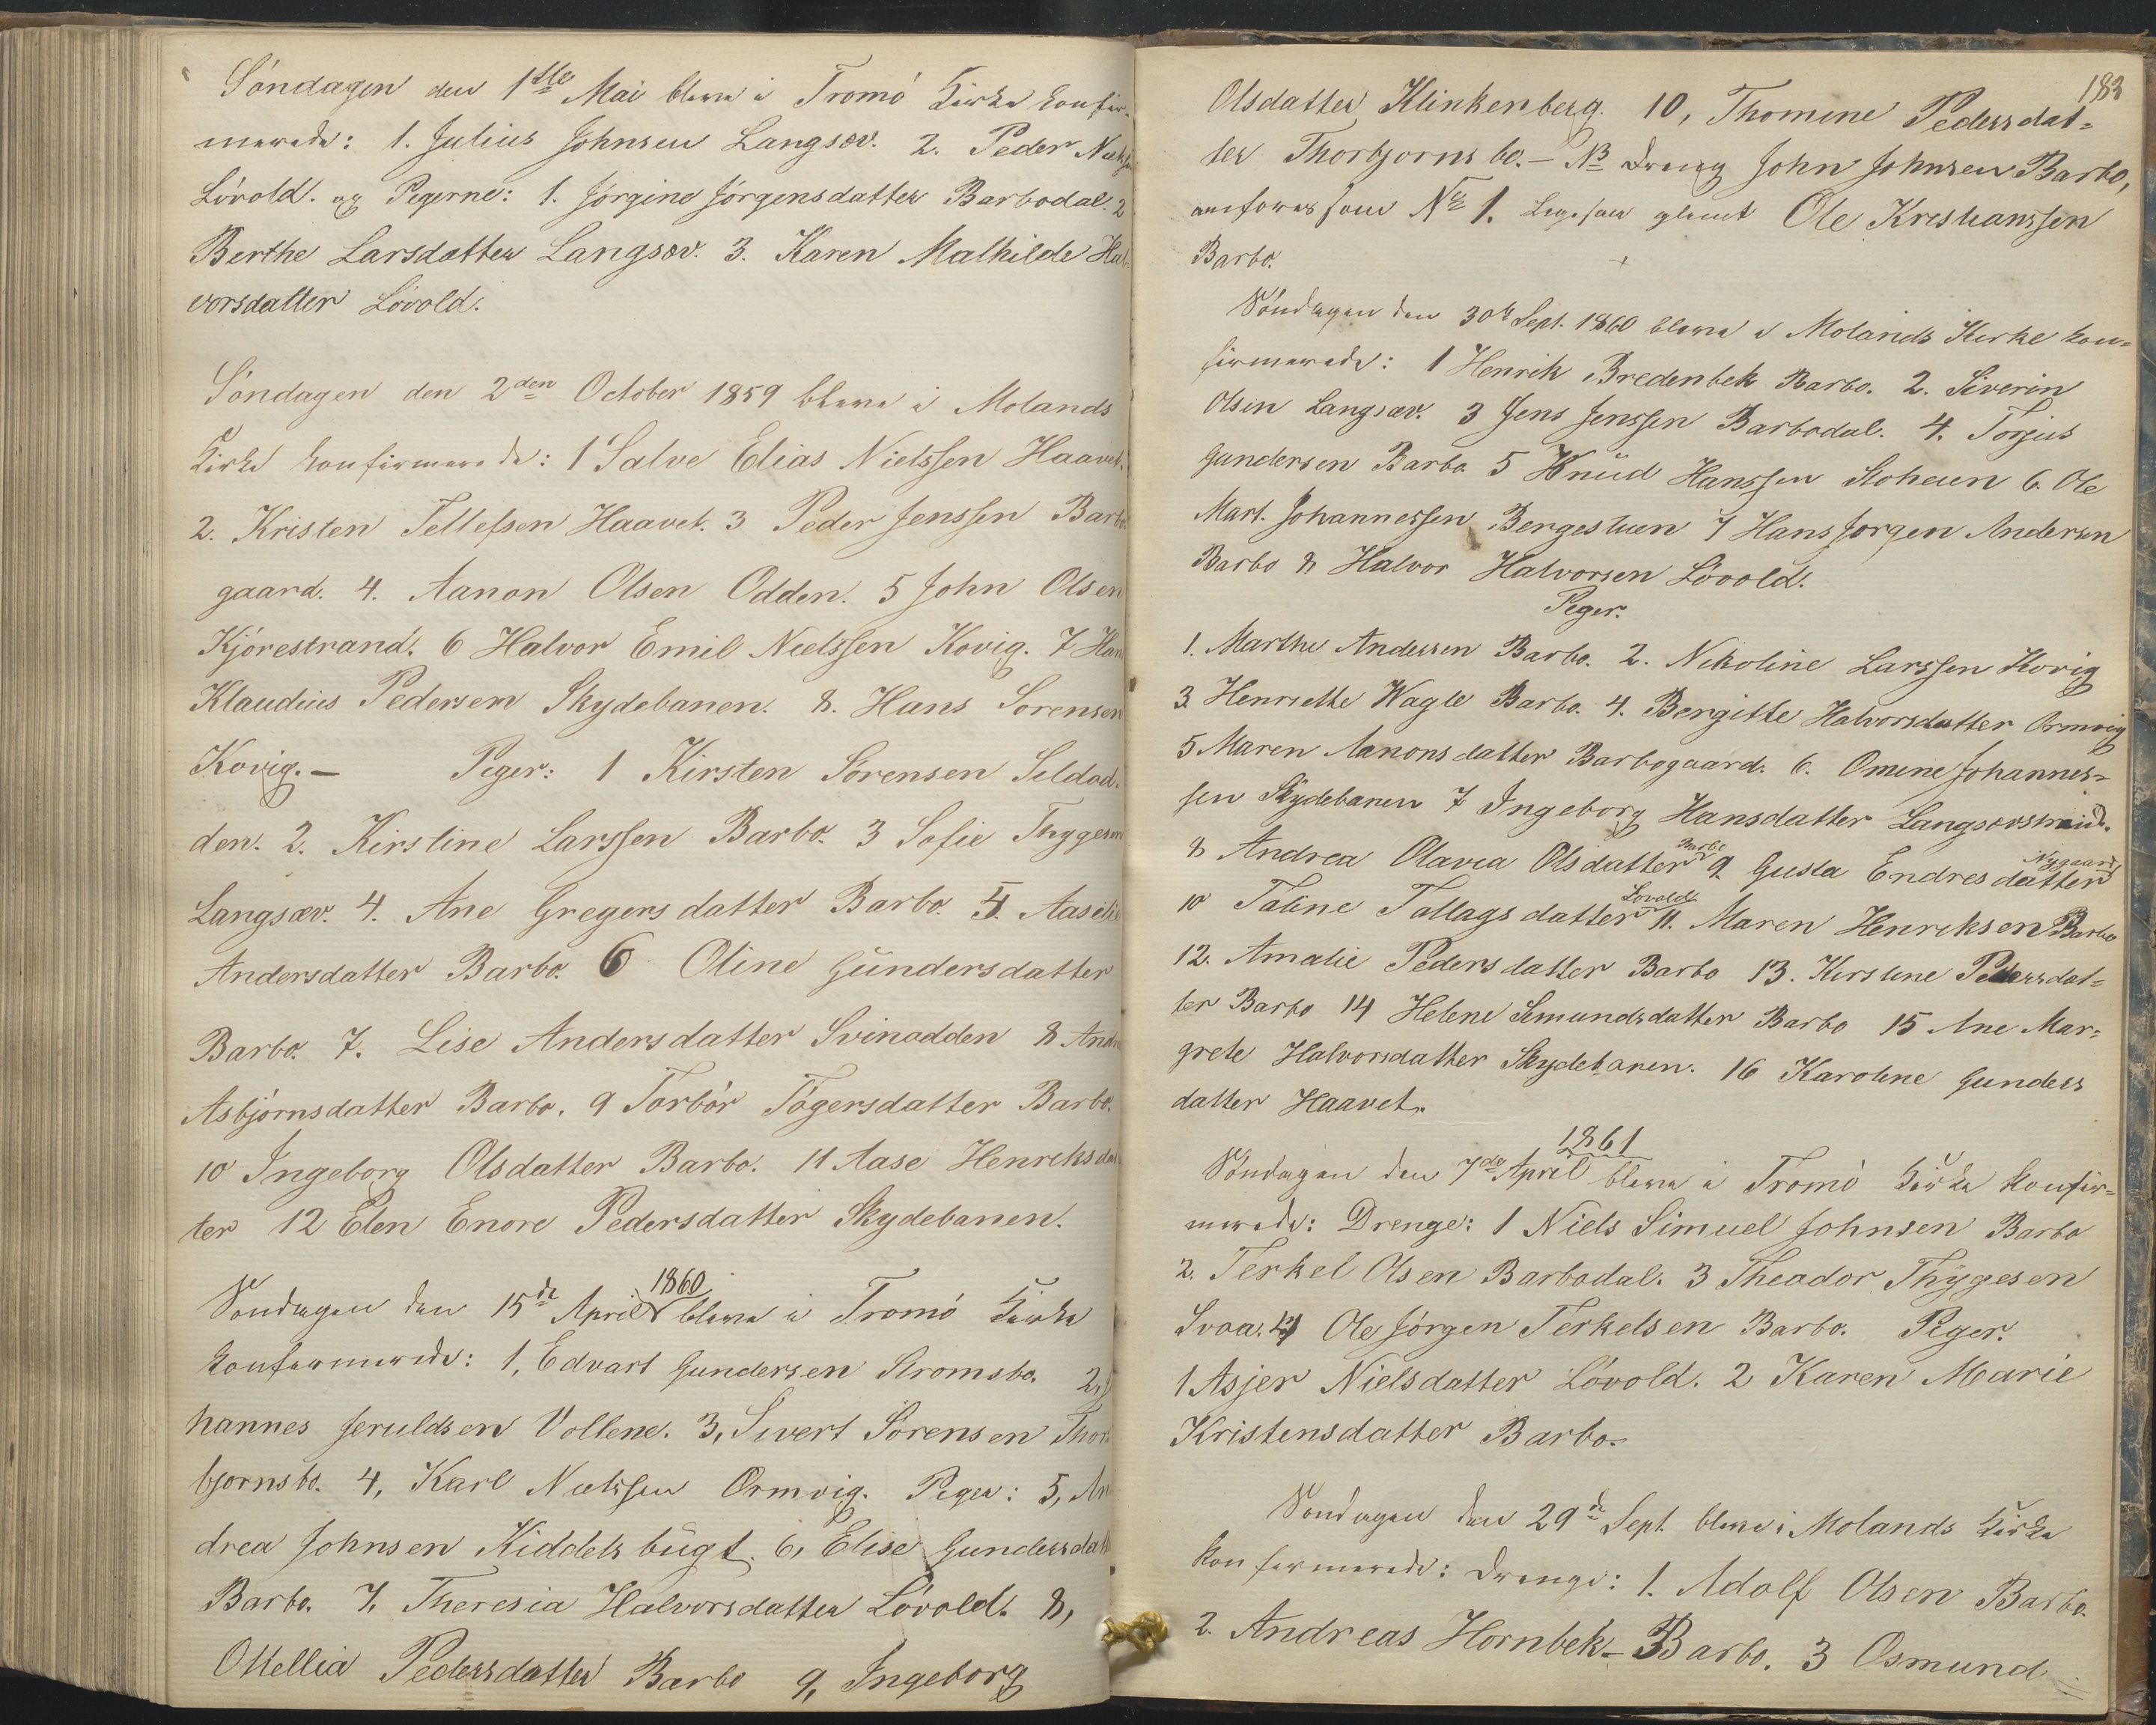 Söndagen den 1ste Mai bleve i Tromö Kirke konfir-
merede: 1. Julius Johnsen Langsæv. 2. Peder Niels
Lövold. og Pigerne: 1. Jörgine Jörgensdatter Barbodal. 2
Berthe Larsdatter Langsæv. 3. Karen Mathilde Hal-
vorsdatter Lövold.
Söndagen den 2den October 1859 bleve i Molands
Kirke konfirmerede: 1 Salve Elias Nielssen Haavet.
2. Kristen Tellefsen Haavet. 3 Peder Jenssen Barbo
gaard. 4. Aanon Olsen Odden. 5 John Olsen
Kjörestrand. 6 Halvor Emil Nielssen Kovig. 7 Hans
Klaudius Pedersen Skydebanen. 8. Hans Sorensen
Kovig. — Piger: 1 Kirsten Sörensen Seldod-
den. 2. Kirstine Larssen Barbo. 3 Sofie Thygesen
Langsæv. 4. Ane Gregersdatter Barbo. 5. Aasel
Andersdatter Barbo. 6 Oline Gundersdatter
Barbo. 7. Lise Andersdatter Svinodden 8 Andr
Asbjörnsdatter Barbo. 9 Torbör Tögersdatter Barbo.
10 Ingeborg Olsdatter Barbo. 11 Aase Henriksdat
ter 12 Elen Enore Pedersdatter Skydebanen.
1860
Söndagen den 15de April bleve i Tromö Kirke
konfirmerede: 1, Edvart Gundersen Stromsbo. 2, Jo
hannes Jeruldsen Vollene. 3, Sivert Sörensen Thor
bjornsbo. 4, Karl Nielssen Ormvig. Piger: 5, An
drea Johnsen Kiddelsbugt. 6, Elise Gundersdatt
Barbo. 7, Theresia Halvorsdatter Lövold. 8,
Otellia Pedersdatter Barbo 9, Ingeborg
183
Olsdatter Klinkenberg. 10, Thomine Pedersdat=
ter Thorbjornsbo. — NB Dreng John Johnsen Barbo,
anföres som No 1. Ligesaa glemt Ole Kristianssen
Barbo.
Söndagen den 30te Sept. 1860 bleve i Molands Kirke kon=
firmerede: 1 Henrik Bredenbek Barbo. 2. Siverin
Olsen Langsæv. 3 Jens Jenssen Barbodal. 4. Torjus
Gundersen Barbo 5 Knud Hanssen Stoheien 6. Ole
Mart. Johannessen Bergestuen 7 Hans Jorgen Andersen
Barbo 8 Halvor Halvorsen Lövold.
Piger.
1. Marthe Andersen Barbo. 2. Nikoline Larssen Kovig
3. Henriette Wagle Barbo. 4. Bergitte Halvorsdatter Ormvig
5 Maren Aanonsdatter Barbogaard. 6. Omine Johannes=
sen Skydebanen 7 Ingeborg Hansdatter Langsævstrand.
8 Andrea Olavia Olsdatter Barbo 9 Gusta Endresdatter Nygaard
10 Taline Tallagsdatter Lövold 11. Maren Henriksen Barbo
12. Amalie Pedersdatter Barbo 13. Kirstine Pedersdat=
ter Barbo 14 Helene Simundsdatter Barbo 15 Ane Mar=
grete Halvorsdatter Skydebanen. 16 Karoline Gunders
datter Haavet.
1861
Söndagen den 7de April bleve i Tromö Kirke konfir=
merede: Drenge: 1 Niels Simuel Johnsen Barbo
2. Terkel Olsen Barbodal. 3 Theador Thygesen
Svaa. 4 Ole Jörgen Terkelsen Barbo. Piger.
1 Asjer Nielsdatter Lövold. 2 Karen Marie
Kristensdatter Barbo.
Söndagen den 29de Sept. bleve i Molands Kirke
konfirmerede: Drenge: 1. Adolf Olsen Barbo.
2. Andreas Hornbek — Barbo. 3 Osmund